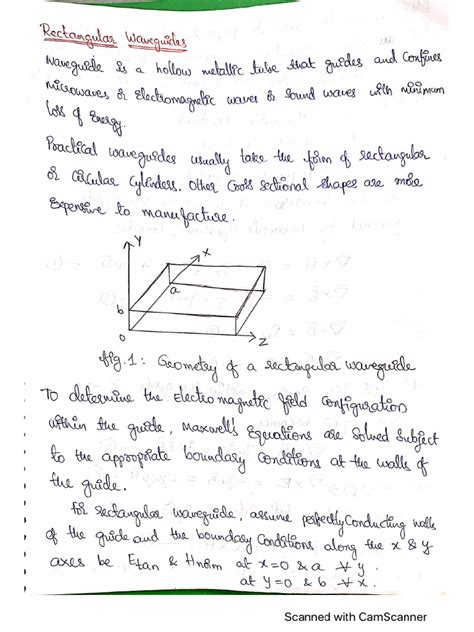 Rectangular Waveguides
Waveguide is a hollow metallic tube that guides and Confines
microwaves or Electromagnetic waves or Sound waves with minimum
loss of Energy.
Practical waveguides usually take the form of rectangular
or Circular Cylinders. Other Cross Sectional shapes are more
Expensive to manufacture.
Y
x
a
b
0
Z
fig.1: Geometry of a rectangular waveguide
To determine the Electromagnetic field Configuration
within the guide, Maxwell's Equations are Solved Subject
to the appropriate boundary Conditions at the walls of
the guide.
For rectangular waveguide, assume perfectly Conducting walls
of the guide and the boundary Conditions along the x & y
axes be Etan & Hnorm at x=0 & a ∀ y.
at y=0 & b ∀ x.
Scanned with CamScanner